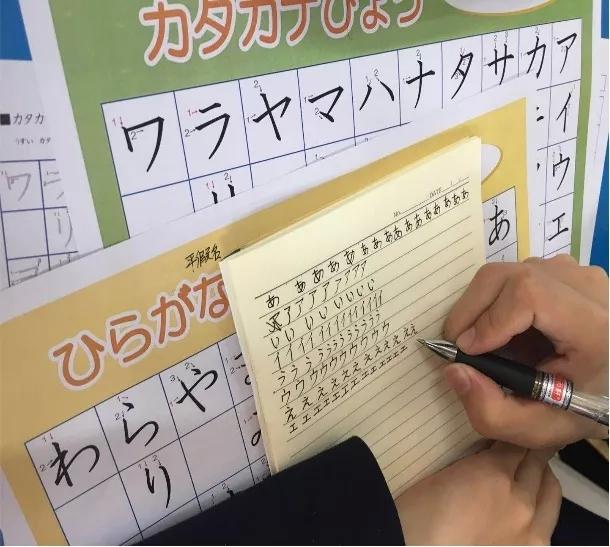 カタカナひょう
ワ ラ ヤ マ ハ ナ タ サ カ ア
リ イ
ウ
エ
■カタカ
うすい カタ
ワ ラ
リ
平假名
ひらがな
わ ら や あ
り
NO. DATE
あ あ あ あ あ あ あ あ あ あ あ あ あ あ
ア ア ア ア ア ア ア ア
い い い い い い い い
イ イ イ イ イ イ イ イ イ イ イ
う う う う う う う う う う
ウ ウ ウ ウ ウ ウ ウ ウ ウ ウ
え え え え え え え え え え え
エ エ エ エ エ エ エ エ エ エ